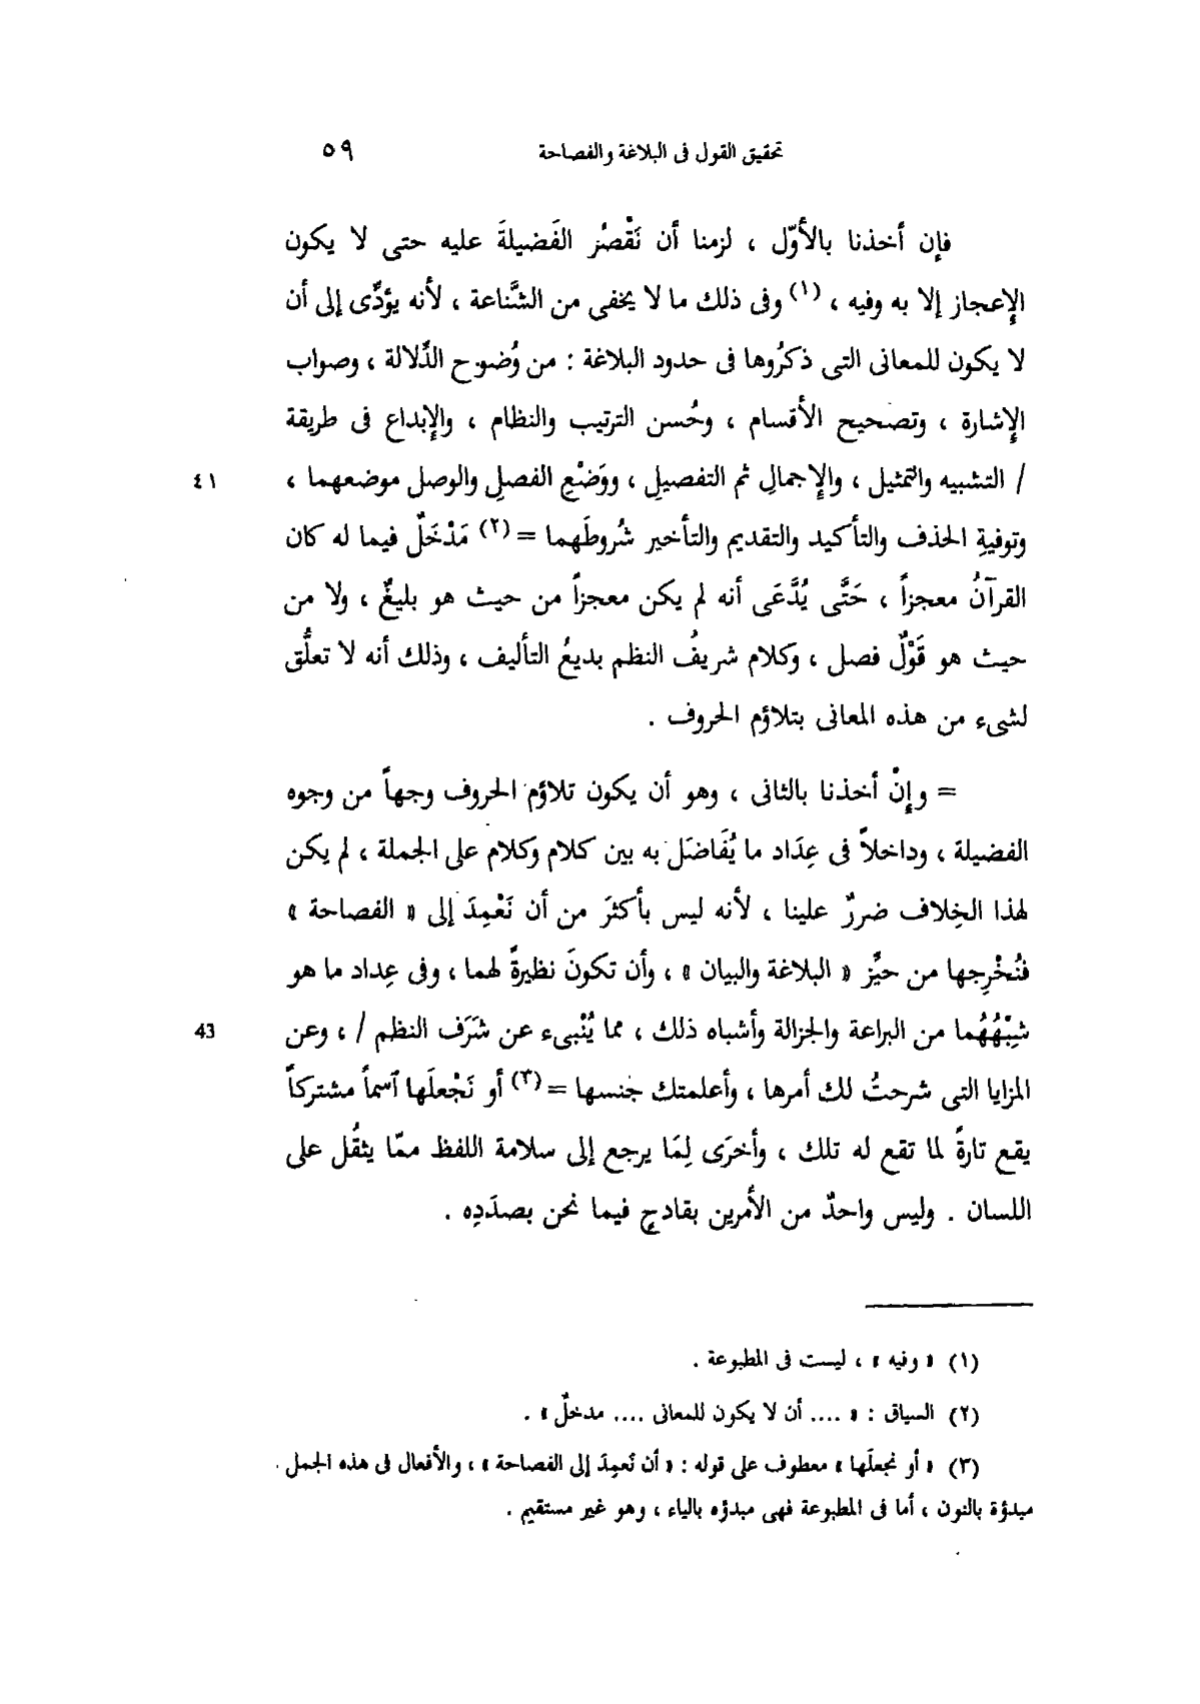 تحقيق القول فى البلاغة والفصاحة ٥٩
فإن أخذنا بالأوّل ، لزمنا أن نَقْصُر الفَضيلةَ عليه حتى لا يكون
الإعجاز إلا به وفيه ، (١) وفى ذلك ما لا يخفى من الشَّناعة ، لأنه يؤدِّى إلى أن
لا يكون للمعانى التى ذكرُوها فى حدود البلاغة : من وُضوح الدِّلالة ، وصواب
الإشارة ، وتصحيح الأقسام ، وحُسن الترتيب والنظام ، والإبداع فى طريقة
/ التشبيه والتمثيل ، والإجمالِ ثم التفصيلِ ، ووَضْعِ الفصلِ والوصل موضعهما ، ٤١
وتوفيةِ الحذف والتأكيد والتقديم والتأخير شُروطَهما = (٢) مَدْخَلٌ فيما له كان
القرآنُ معجزاً ، حَتَّى يُدَّعَى أنه لم يكن معجزاً من حيث هو بليغٌ ، ولا من
حيث هو قَوْلٌ فصل ، وكلام شريفُ النظم بديعُ التأليف ، وذلك أنه لا تعلُّق
لشىء من هذه المعانى بتلاؤم الحروف .
= وإنْ أخذنا بالثانى ، وهو أن يكون تلاؤم الحروف وجهاً من وجوه
الفضيلة ، وداخلاً فى عِدَاد ما يُفَاضَل به بين كلام وكلام على الجملة ، لم يكن
لهذا الخِلاف ضررٌ علينا ، لأنه ليس بأكثرَ من أن نَعْمِدَ إلى « الفصاحة »
فنُخْرِجها من حيِّز « البلاغة والبيان » ، وأن تكونَ نظيرةً لهما ، وفى عِداد ما هو
شِبْهُهُما من البراعة والجزالة وأشباه ذلك ، مما يُنْبىء عن شَرَف النظم / ، وعن 43
المزايا التى شرحتُ لك أمرها ، وأعلمتك جنسها = (٣) أو نَجْعلَها آسماً مشتركاً
يقع تارةً لما تقع له تلك ، وأخرَى لِمَا يرجع إلى سلامة اللفظ ممّا يثقُل على
اللسان . وليس واحدٌ من الأمرين بقادحٍ فيما نحن بصدَدِه .
(١) « وفيه » ، ليست فى المطبوعة .
(٢) السياق : « .... أن لا يكون للمعانى .... مدخلٌ » .
(٣) « أو نجعلَها » معطوف على قوله : « أن نَعمِدَ إلى الفصاحة » ، والأفعال فى هذه الجمل
مبدؤة بالنون ، أما فى المطبوعة فهى مبدؤه بالياء ، وهو غير مستقيم .